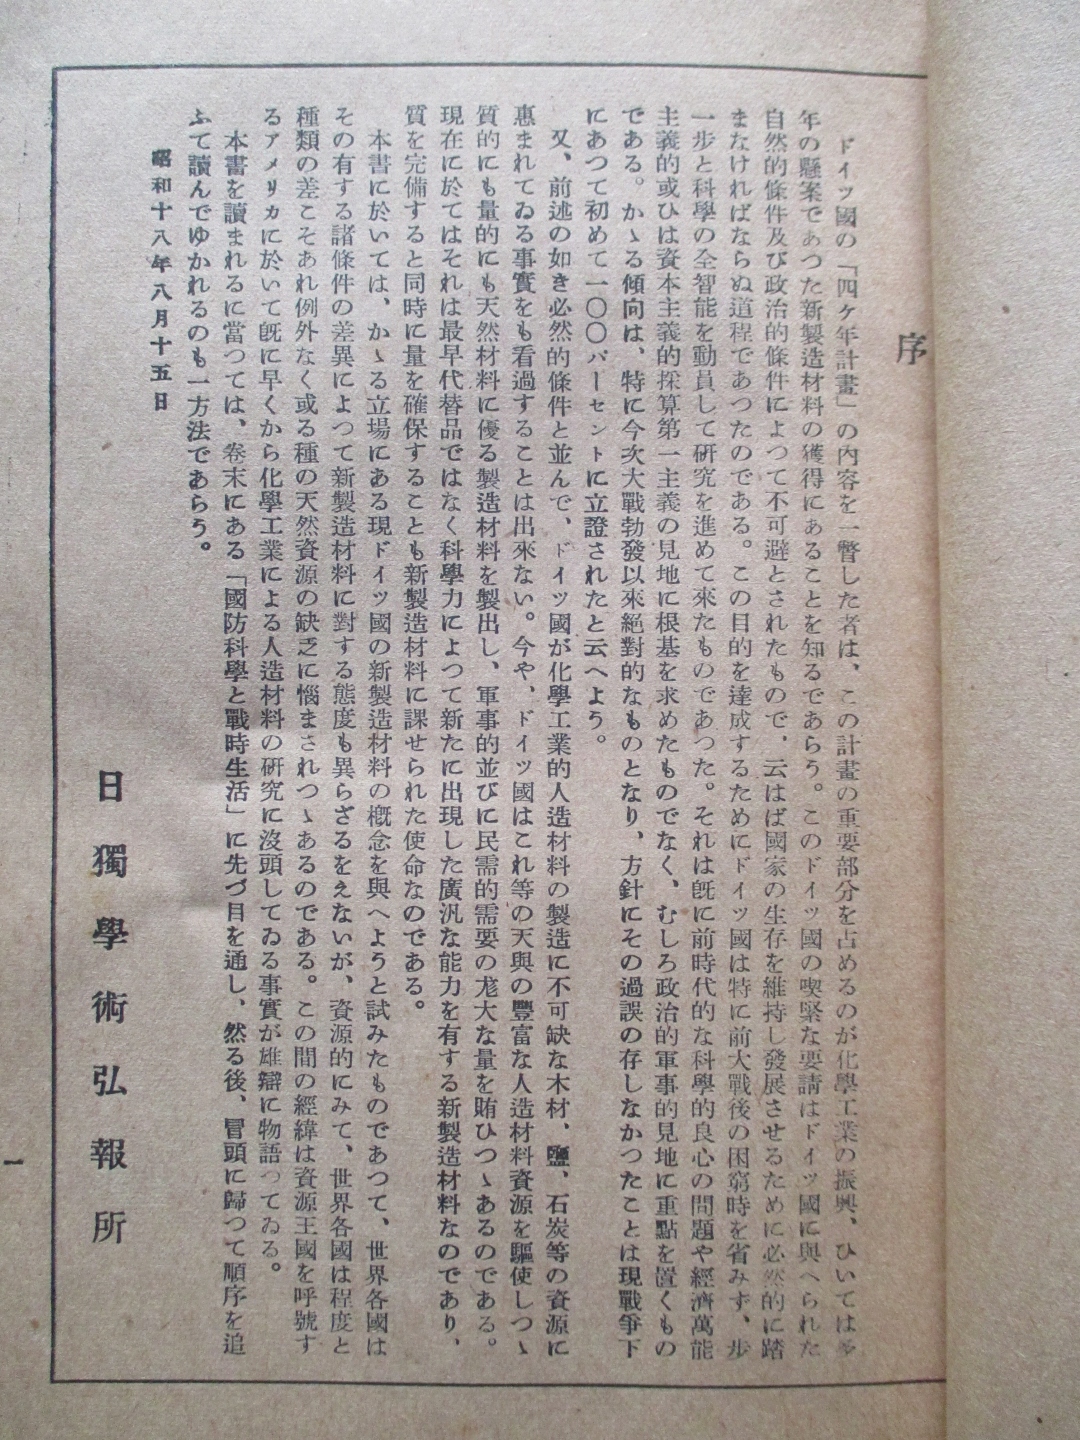 序
ドイツ國の「四ケ年計畫」の内容を一瞥した者は、この計畫の重要部分を占めるのが化學工業の振興、ひいては多
年の懸案であつた新製造材料の獲得にあることを知るであらう。このドイツ國の喫緊な要請はドイツ國に與へられた
自然的條件及び政治的條件によつて不可避とされたもので、云はば國家の生存を維持し發展させるために必然的に踏
まなければならぬ道程であつたのである。この目的を達成するためにドイツ國は特に前大戰後の困窮時を省みず、歩
一歩と科學の全智能を動員して研究を進めて來たものであつた。それは既に前時代的な科學的良心の問題や經濟萬能
主義的或ひは資本主義的採算第一主義の見地に根基を求めたものでなく、むしろ政治的軍事的見地に重點を置くもの
である。かゝる傾向は、特に今次大戰勃發以來絕對的なものとなり、方針にその過誤の存しなかつたことは現戰爭下
にあつて初めて一〇〇パーセントに立證されたと云へよう。
又、前述の如き必然的條件と並んで、ドイツ國が化學工業的人造材料の製造に不可缺な木材、鹽、石炭等の資源に
惠まれてゐる事實をも看過することは出來ない。今や、ドイツ國はこれ等の天與の豐富な人造材料資源を驅使しつゝ
質的にも量的にも天然材料に優る製造材料を製出し、軍事的並びに民需的需要の尨大な量を賄ひつゝあるのである。
現在に於てはそれは最早代替品ではなく科學力によつて新たに出現した廣汎な能力を有する新製造材料なのであり、
質を完備すると同時に量を確保することも新製造材料に課せられた使命なのである。
本書に於いては、かゝる立場にある現ドイツ國の新製造材料の概念を與へようと試みたものであつて、世界各國は
その有する諸條件の差異によつて新製造材料に對する態度も異らざるをえないが、資源的にみて、世界各國は程度と
種類の差こそあれ例外なく或る種の天然資源の缺乏に惱まされつゝあるのである。この間の經緯は資源王國を呼號す
るアメリカに於いて既に早くから化學工業による人造材料の硏究に沒頭してゐる事實が雄辯に物語つてゐる。
本書を讀まれるに當つては、卷末にある「國防科學と戰時生活」に先づ目を通し、然る後、冒頭に歸つて順序を追
ふて讀んでゆかれるのも一方法であらう。
昭和十八年八月十五日
日獨學術弘報所
一